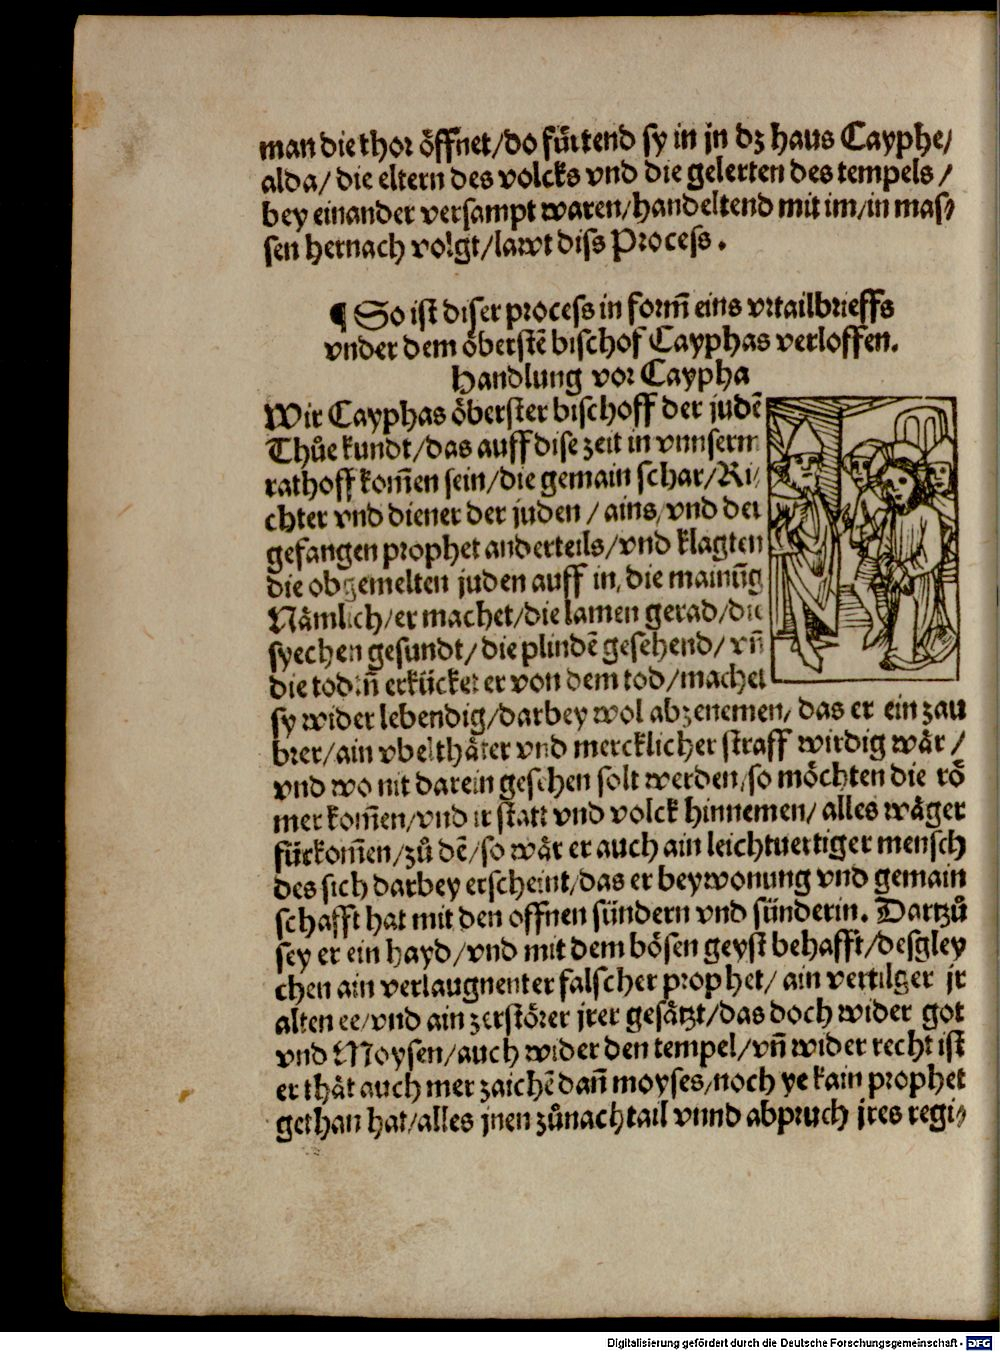 man die thor öffnet/do fürtend sy in jn dz haus Cayphe/
alda/ die eltern des volcks vnd die gelerten des tempels /
bey einander versampt waren/handeltend mit im/in mas⸗
sen hernach volgt/lawt diss Process.
¶ So ist diser process in form̄ eins vrtailbrieffs
vnder dem öberstē bischof Cayphas verloffen.
Handlung vor Caypha
Wir Cayphas öberster bischoff der judē
Thůe kundt/das auff dise zeit in vnnserm
rathoff kom̄en sein/die gemain schar/Ri⸗
chter vnd diener der juden / ains/vnd der
gefangen prophet anderteils/vnd klagten
die obgemelten juden auff in, die mainūg
Nämlich/er machet/die lamen gerad/die
syechen gesundt/die plindē gesehend/ vn̄
die todtn̄ erkücket er von dem tod/machet
sy wider lebendig/darbey wol abzenemen/ das er ein zau
brer/ain vbelthäter vnd mercklicher straff wirdig wär /
vnd wo nit darein gesehen solt werden/so möchten die rö
mer kom̄en/vnd ir statt vnd volck hinnemen/ alles wäger
fürkom̄en/zů dē/so wär er auch ain leichtuertiger mensch
des sich darbey erscheint/das er beywonung vnd gemain
schafft hat mit den offnen sündern vnd sünderin. Dartzů
sey er ein hayd/vnd mit dem bösen geyst behafft/desgley
chen ain verlaugnenter falscher prophet/ ain vertilger jr
alten ee/vnd ain zerstörer jrer gesätzt/das doch wider got
vnd Moysen/auch wider den tempel/vn̄ wider recht ist
er thät auch mer zaichē dan̄ moyses/noch ye kain prophet
gethan hat/alles jnen zůnachtail vnnd abpruch jres regi⸗
Digitalisierung gefördert durch die Deutsche Forschungsgemeinschaft - DFG